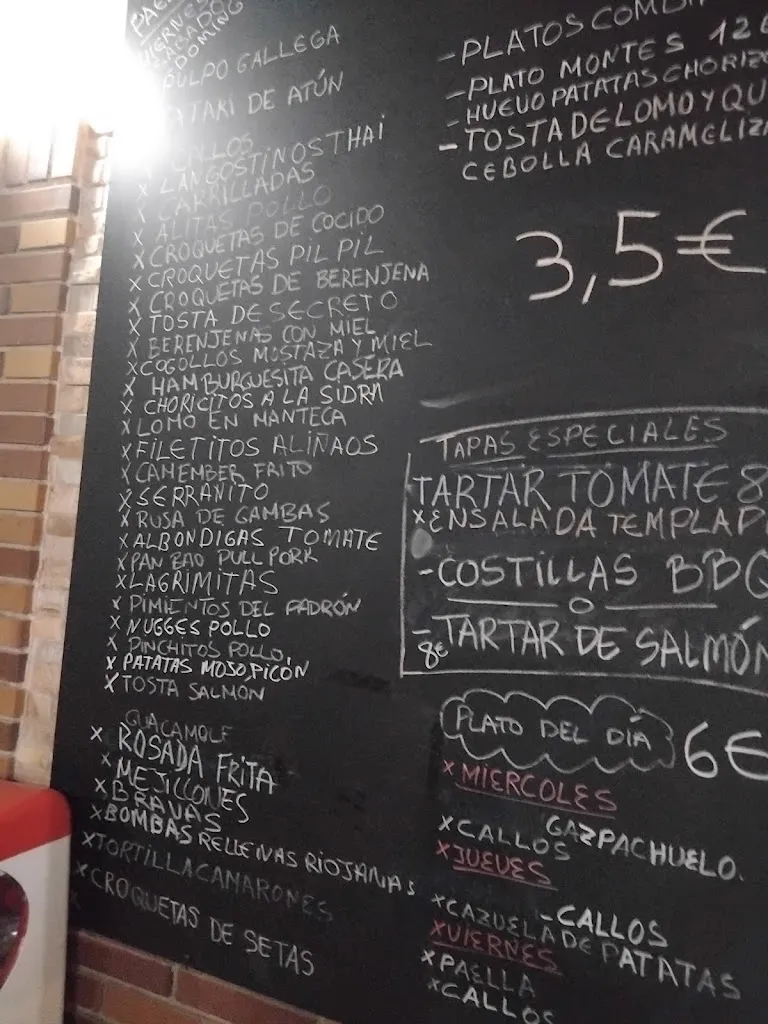 VIERNES
SABADO
DOMING
PULPO GALLEGA
ATAKI DE ATÚN
CALLOS
X LANGOSTINOS THAI
X CARRILLADAS
X ALITAS POLLO
X CROQUETAS DE COCIDO
X CROQUETAS PIL PIL
X CROQUETAS DE BERENJENA
X TOSTA DE SECRETO
X BERENJENAS CON MIEL
X COGOLLOS MOSTAZA Y MIEL
X HAMBURGUESITA CASERA
X CHORICITOS A LA SIDRA
X LOMO EN MANTECA
X FILETITOS ALIÑAOS
X CAMEMBER FRITO
X SERRANITO
X RUSA DE GAMBAS
X ALBONDIGAS TOMATE
X PAN BAO PULL PORK
X LAGRIMITAS
X PIMIENTOS DEL PADRÓN
X NUGGES POLLO
X PINCHITOS POLLO
X PATATAS MOJO PICÓN
X TOSTA SALMON
GUACAMOLE
X ROSADA FRITA
X MEJILLONES
X BRAVAS
X BOMBAS RELLENAS RIOJANAS
X TORTILLA CAMARONES
X CROQUETAS DE SETAS
- PLATOS COMBI
- PLATO MONTES 12€
- HUEVO PATATAS CHORIZO
- TOSTA DE LOMO Y QU
CEBOLLA CARAMELIZA
3,5€
TAPAS ESPECIALES
TARTAR TOMATE 8
X ENSALADA TEMPLAD
- COSTILLAS BBQ
O
- TARTAR DE SALMÓN
8€
PLATO DEL DÍA 6€
X MIERCOLES
GAZPACHUELO.
X CALLOS
X JUEVES
- CALLOS
X CAZUELA DE PATATAS
X VIERNES
X PAELLA
X CALLOS